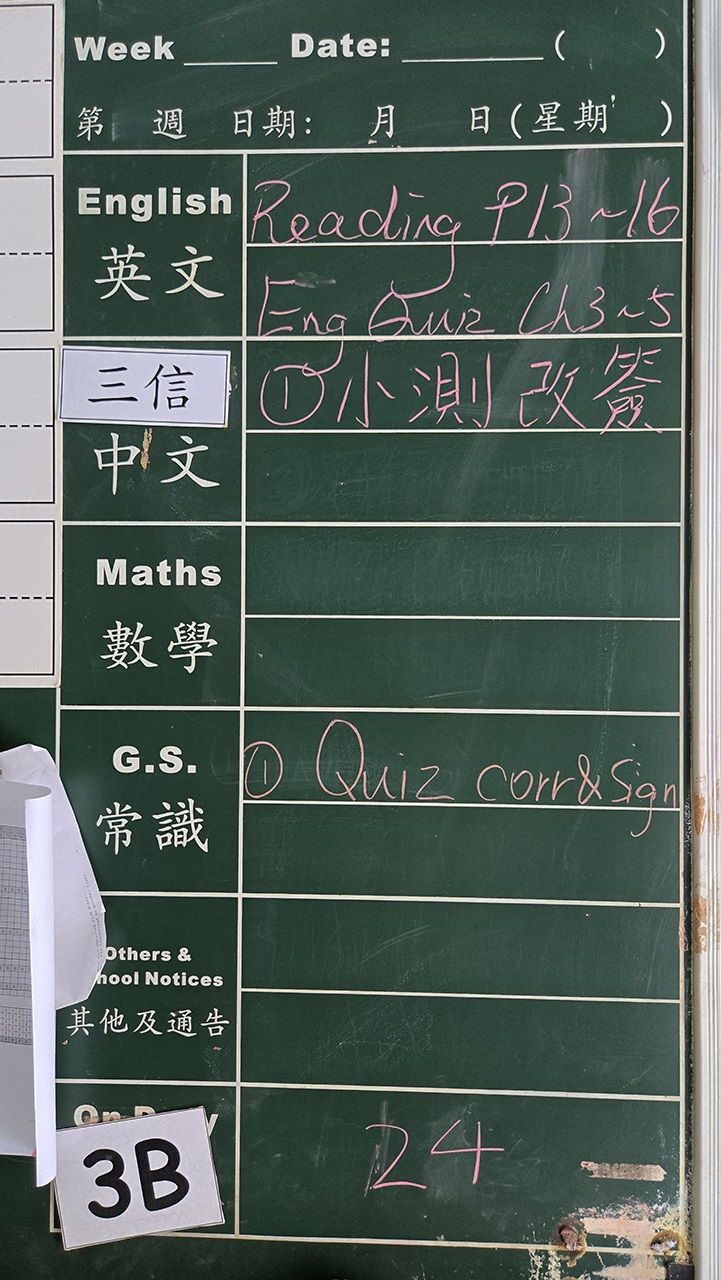 Week ____ Date: ______ ( )
第 週 日期: 月 日(星期 )
English
英文
Reading P13~16
Eng Quiz Ch3~5
三信
中文
①小測改簽
Maths
數學
G.S.
常識
① Quiz corr&Sign
Others &
hool Notices
其他及通告
On D y
3B
24